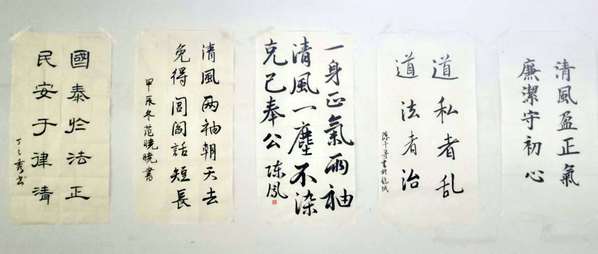 國泰於法正
民安于律清
清風两袖朝天去
免得闾阎話短長
甲辰冬范曉曉書
一身正氣兩袖
清風一塵不染
克己奉公 陈凤
道私者乱
道法者治
清風盈正氣
廉潔守初心